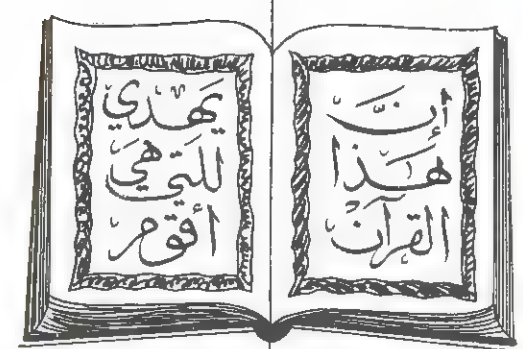 أنَّ
هَذا
القرآن
يَهدي
للتي هَي
أقوم